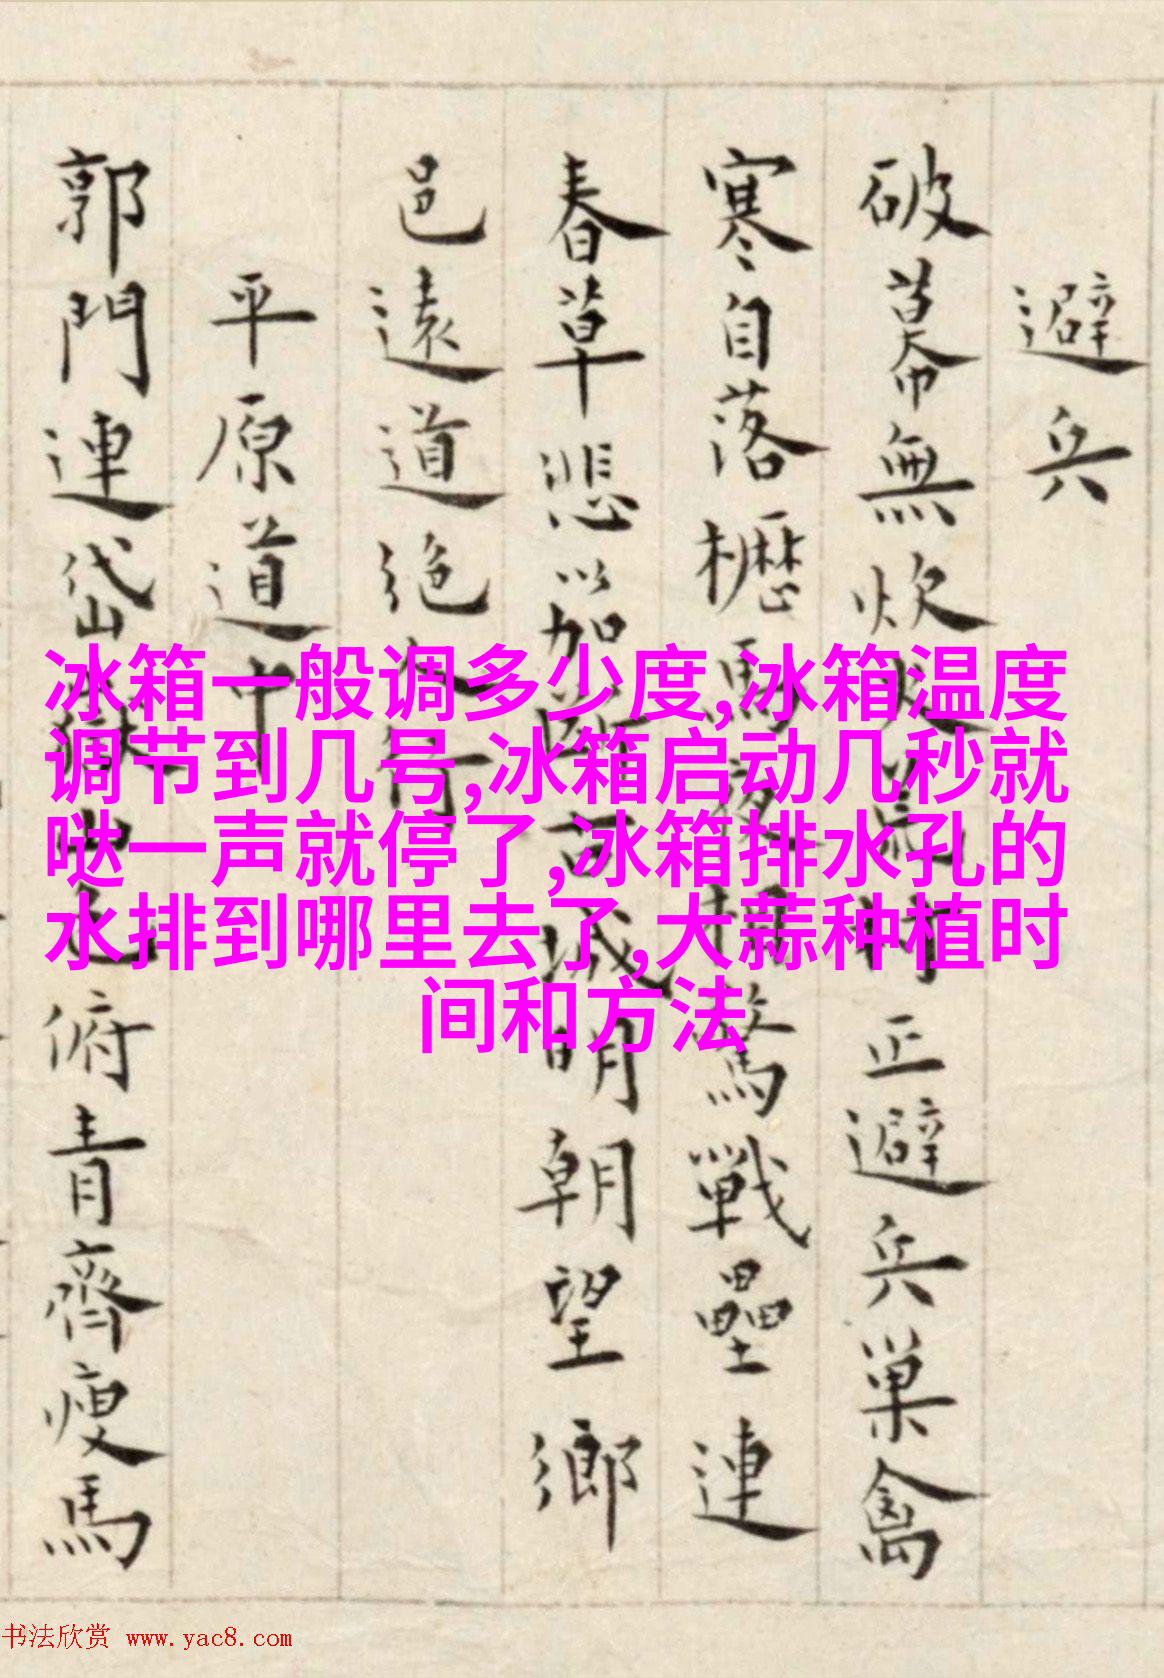 避兵
破幕無炊火村正避兵巢禽
寒自落櫪馬夜驚戰壘連
春草悲笳古城明朝望鄉
邑遠道絕人行
平原道中
郭門連岱嶽俯青齊瘦馬
冰箱一般调多少度,冰箱温度
调节到几号,冰箱启动几秒就
哒一声就停了,冰箱排水孔的
水排到哪里去了,大蒜种植时
间和方法
书法欣赏 www.yac8.com